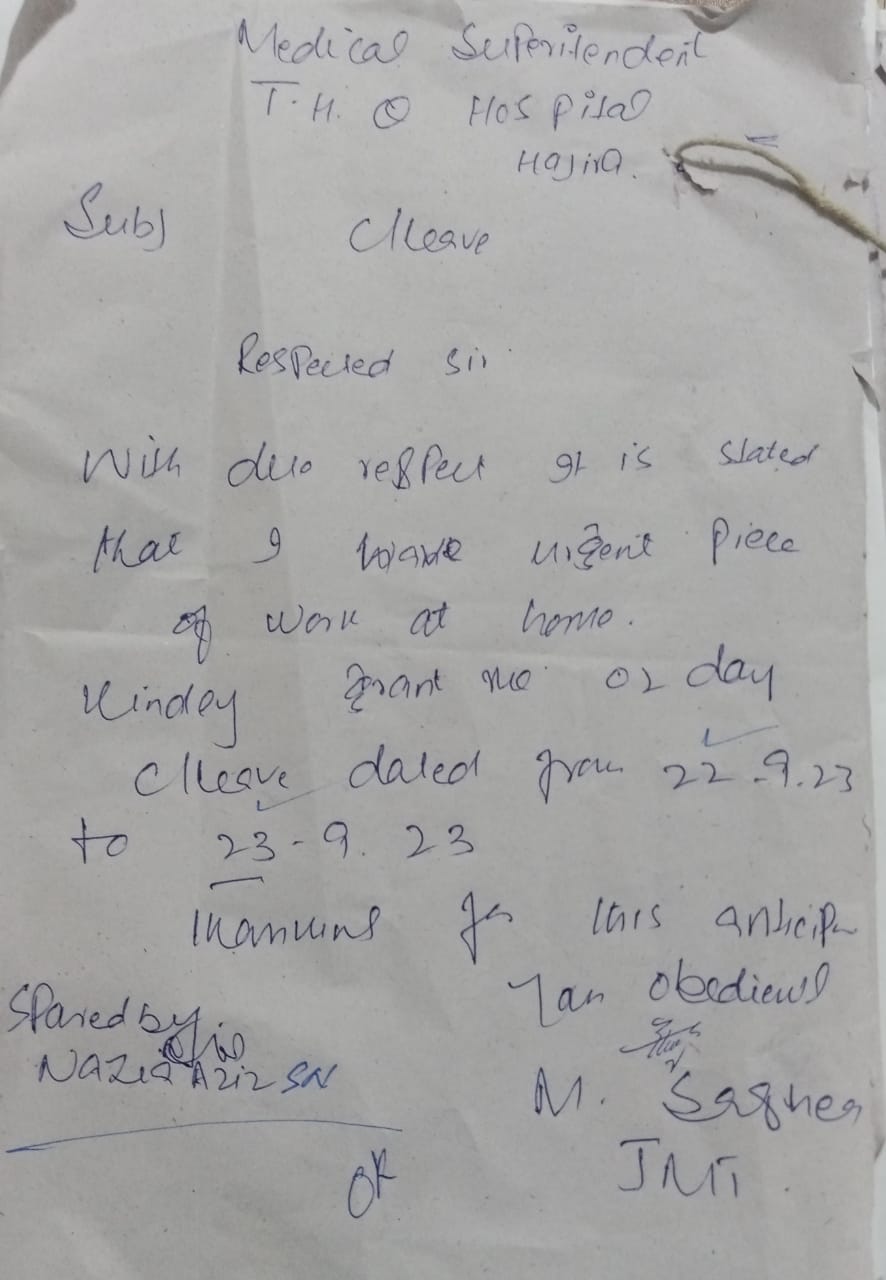 Medical Superitendent
T.H.Q Hospital
Hajira.
Subj C/leave
Respected sir
With due respect It is stated
that I have urgent piece
of work at home.
Kindey grant me 02 day
C/leave dated from 22-9.23
to 23-9.23
thanking for this anticip
I am obedient
Spared by
Nazia Aziz SN
M. Sagheer
JMT.
OK